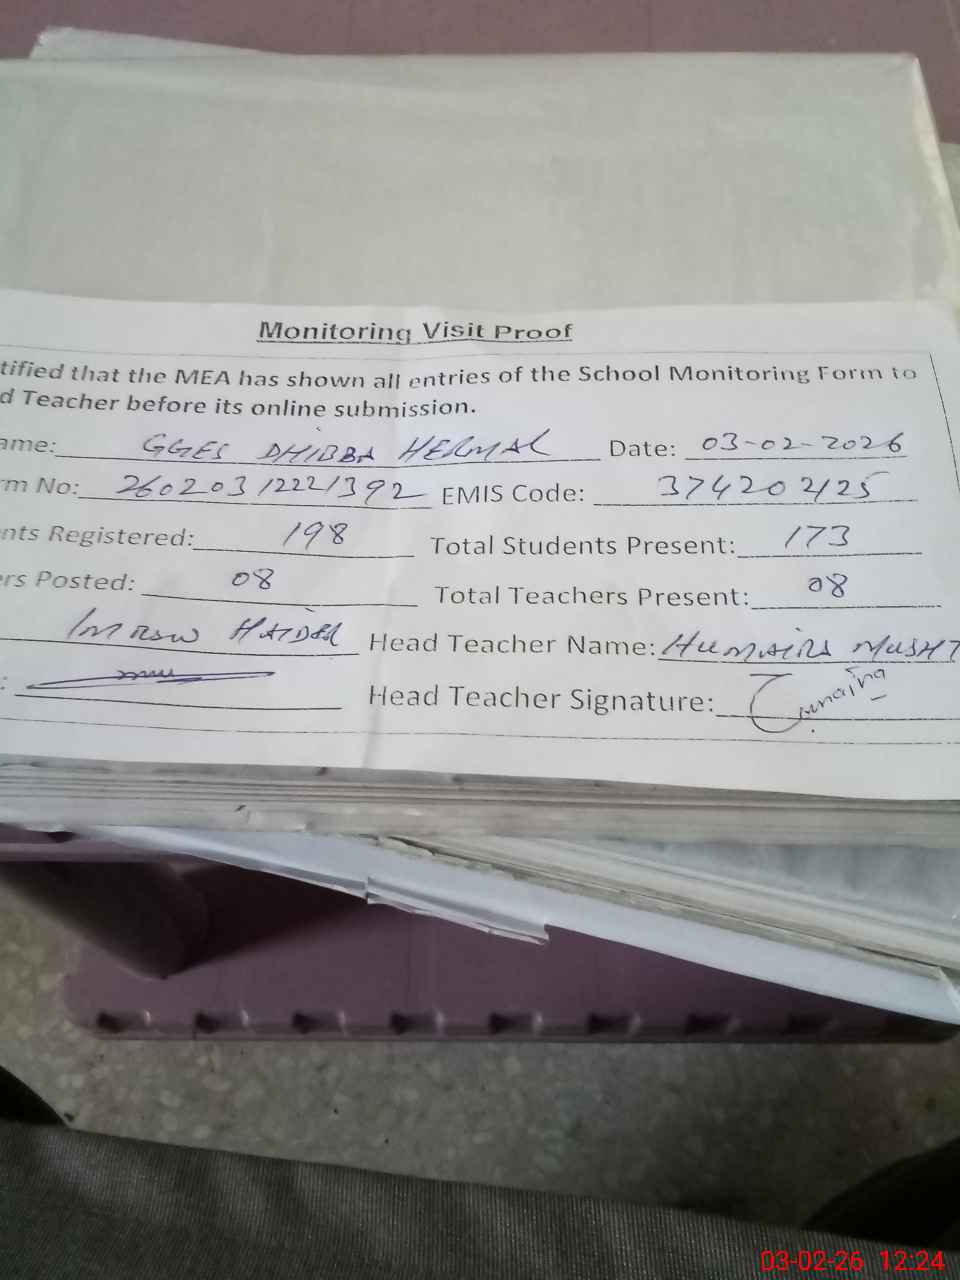 Monitoring Visit Proof
tified that the MEA has shown all entries of the School Monitoring Form to
d Teacher before its online submission.
ame: GGES DHIBBA HERMAL Date: 03-02-2026
rm No: 26020312221392 EMIS Code: 374202125
nts Registered: 198 Total Students Present: 173
ers Posted: 08 Total Teachers Present: 08
IMRAN HAIDER Head Teacher Name: HUMAIRA MUSHT
: Head Teacher Signature:
03-02-26 12:24